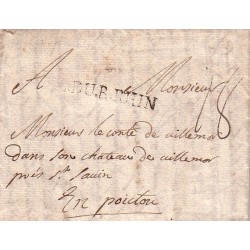 A Monsieur
DU B.RHIN
Monsieur le conte de villemor
dans son chateau de villemor
près st sauin
En poitou